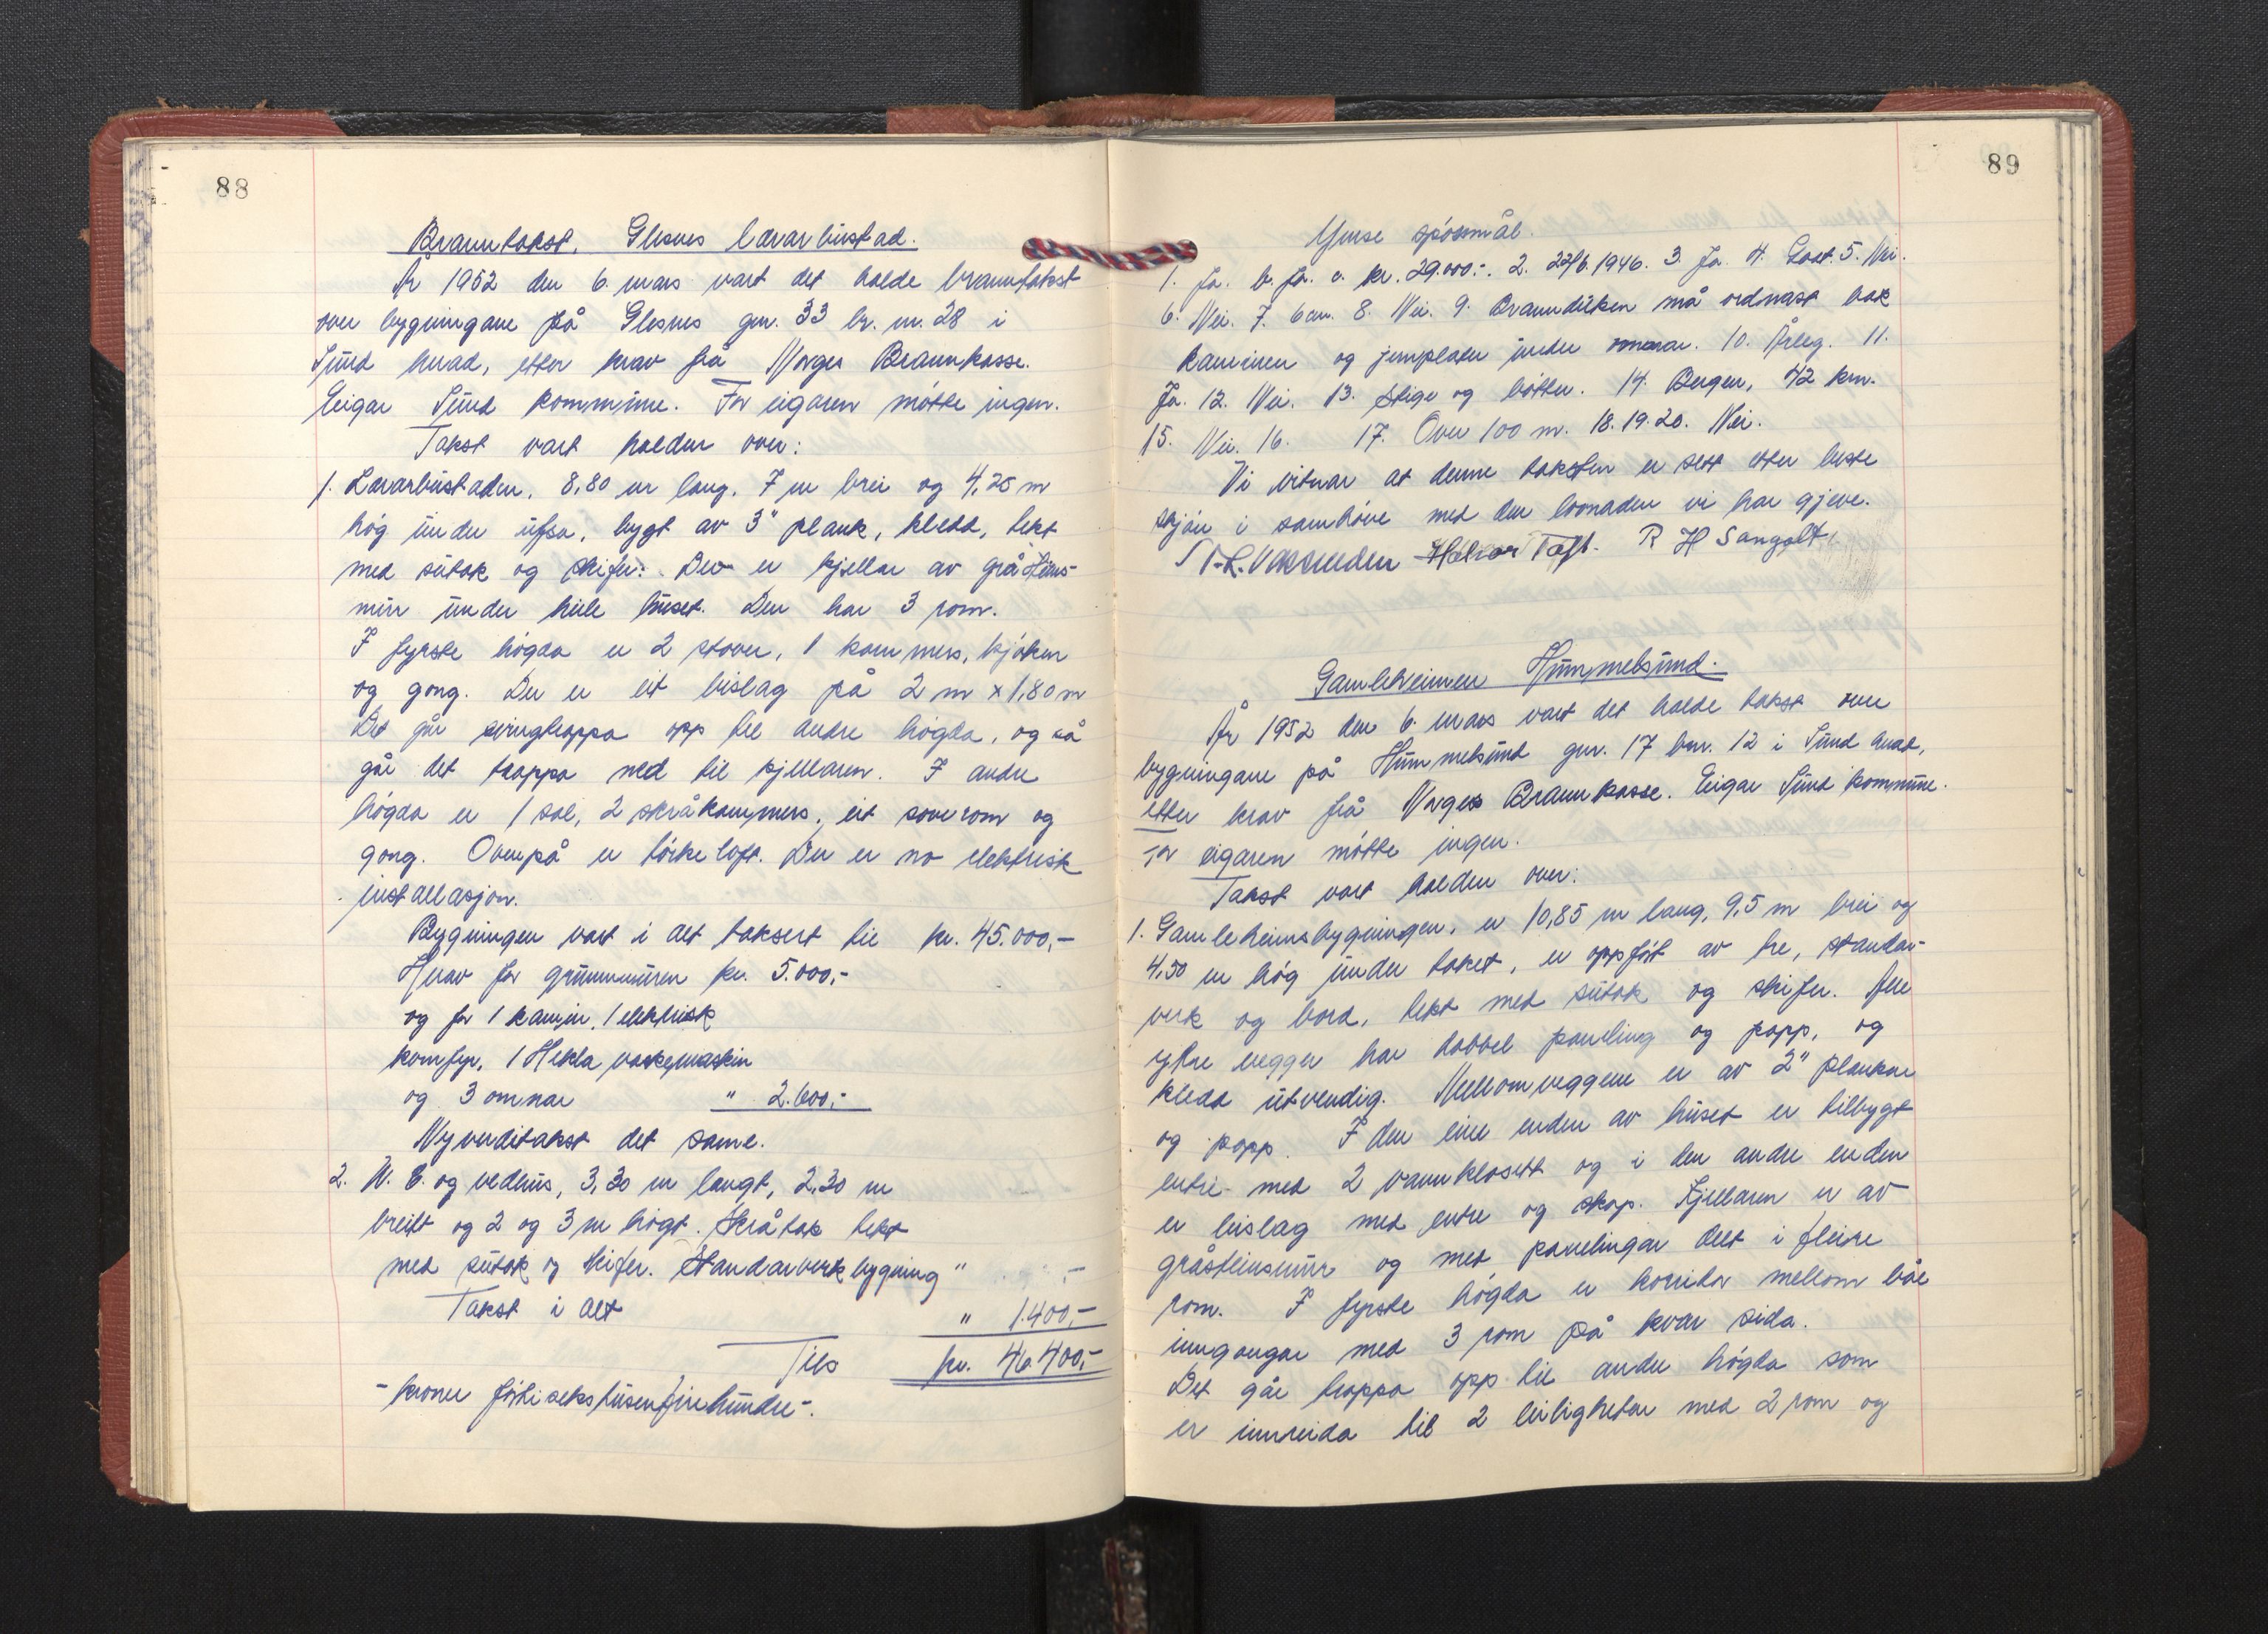 88
Branntakst, Glesnes lærarbustad.
År 1952 den 6. mars vart det halde branntakst
over bygningane på Glesnes gnr. 33 br. nr. 28 i
Sund herad, etter krav frå Norges Brannkasse.
Eigar Sund kommune. For eigaren møtte ingen.
Takst vart halden over:
1. Lærarbustaden, 8,80 m lang, 7 m brei og 4,25 m
høg under ufsa, bygt av 3" plank, kledd, tekt
med sutak og skifer. Der er kjellar av gråsteins-
mur under heile huset. Den har 3 rom.
I fyrste høgda er 2 stover, 1 kammers, kjøken
og gong. Der er eit bislag på 2 m x 1,80 m
Det går svingtrappa opp til andre høgda, og så
går det trappa ned til kjellaren. I andre
høgda er 1 sal, 2 skråkammers, eit soverom og
gong. Ovenpå er tørkeloft. Der er no elektrisk
installasjon.
Bygningen vart i alt taksert til kr. 45.000,-
Herav for grunnmuren kr. 5.000,-
og for 1 kamin, 1 elektrisk
komfyr, 1 Hekla vaskemaskin
og 3 omnar " 2.600,-
Nyverditakst det same.
2. W. C. og vedhus, 3,30 m langt, 2,30 m
breitt og 2 og 3 m høgt. Skråtak tekt
med sutak og skifer. Standarverkbygning " ,-
Takst i alt " 1.400,-
Tils kr. 46.400,-
- kroner førtisekstusenfirehundre -.
89
Ymse spørsmål.
1. Ja. b. Ja. c. kr. 29.000,-. 2. 22/6.1946. 3. Ja. 4. Godt. 5. Nei.
6. Nei. 7. 6 am. 8. Nei. 9. Brannduken må ordnast bak
kaminen og jernplater under omnar. 10. Årleg. 11.
Ja. 12. Nei. 13. Stige og bøtter. 14. Bergen, 42 km.
15. Nei. 16. 17. Over 100 m. 18. 19. 20. Nei.
Vi vitnar at denne taksten er sett etter beste
skjøn i samhøve med den lovnaden vi har gjeve.
Halvor Toft. R H Sangolt.
Gamleheimen Hummelsund.
År 1952 den 6. mars vart det halde takst over
bygningane på Hummelsund gnr. 17 bnr. 12 i Sund herad,
etter krav frå Norges Brannkasse. Eigar Sund kommune.
For eigaren møtte ingen.
Takst vart halden over:
1. Gamleheimsbygningen, er 10,85 m lang, 9,5 m brei og
4,50 m høg under taket, er oppført av tre, standar-
verk og bord, tekt med sutak og skifer. Alle
ytre vegger har dobbel paneling og papp, og
kledd utvendig. Mellomveggene er av 2" plankar
og papp. I den eine enden av huset er tilbygt
entre med 2 vannklosett og i den andre enden
er bislag med entre og skap. Kjellaren er av
gråsteinsmur og med panelingar delt i fleire
rom. I fyrste høgda er korridor mellom båe
inngangar med 3 rom på kvar sida.
Det går trappa opp til andre høgda som
er innreida til 2 leiligheter med 2 rom og